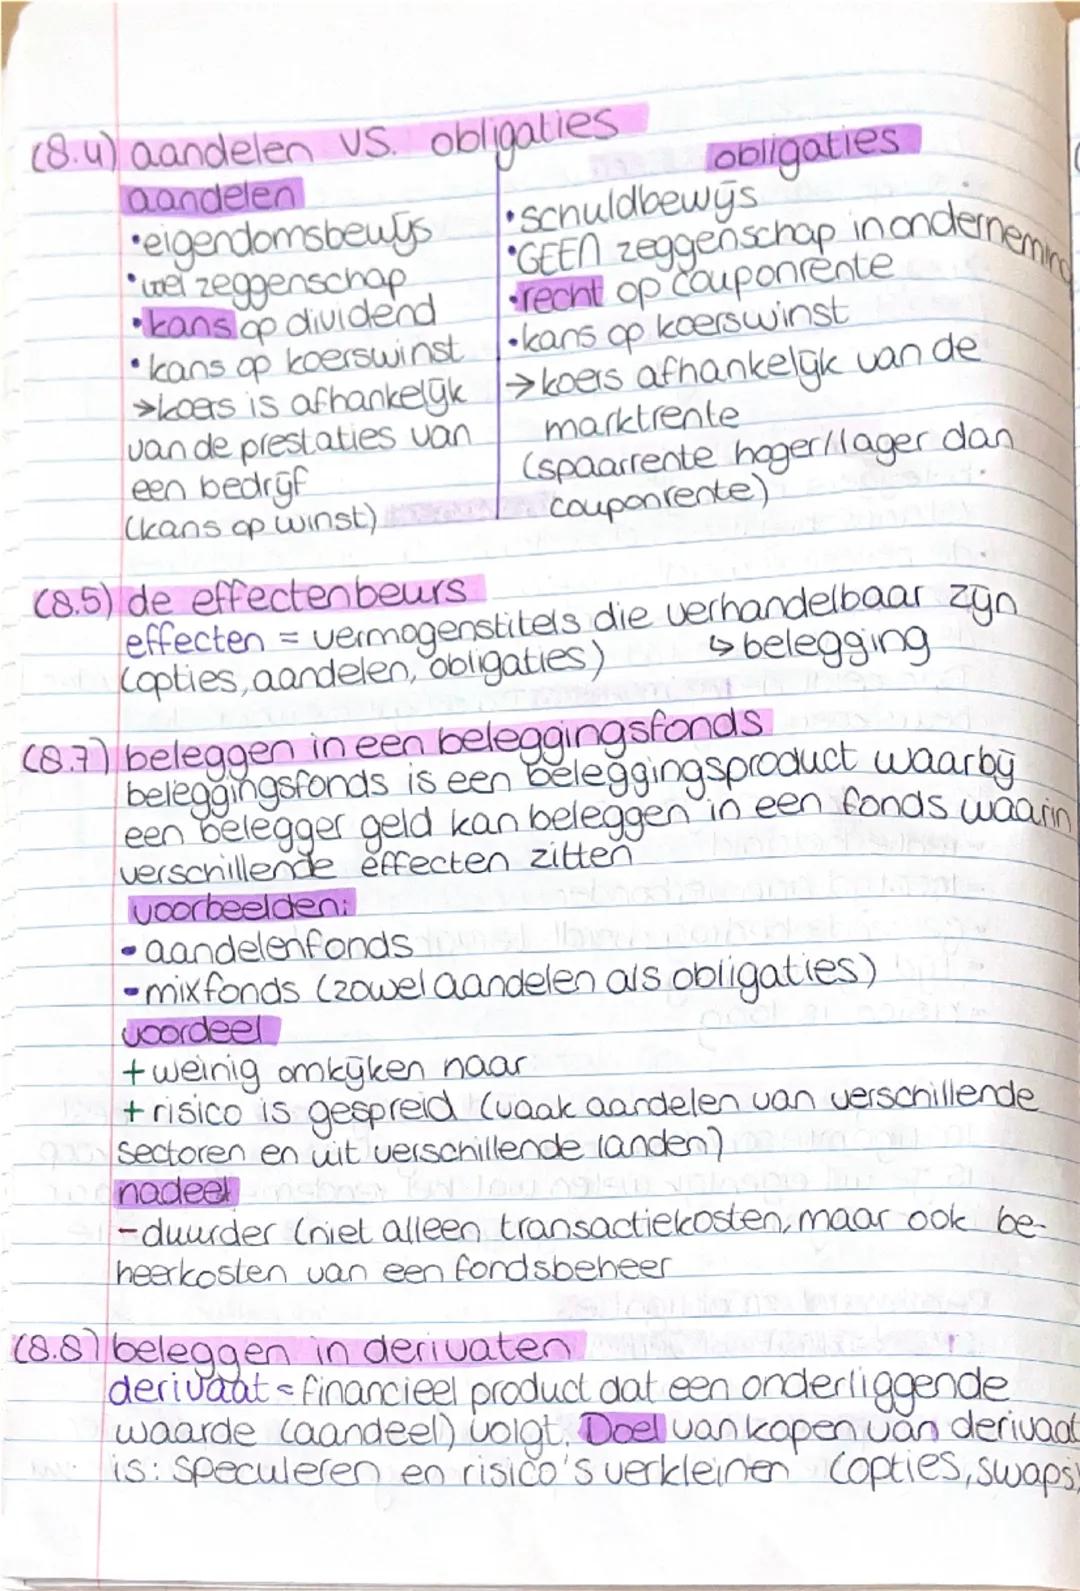 (8.4) aandelen VS. obligaties
aandelen
•eigendomsbewijs
•wel zeggenschap
•kans op dividend
•kans op koerswinst
→koers is afhankelijk
van de prestaties van
een bedrijf
(kans op winst)
obligaties
•schuldbewijs
•GEEN zeggenschap in onderneming
•recht op couponrente
•kans op koerswinst
→koers afhankelijk van de
marktrente
(spaarrente hoger/lager dan
couponrente)
(8.5) de effectenbeurs
effecten = vermogenstitels die verhandelbaar zijn
(opties, aandelen, obligaties) ↳belegging
(8.7) beleggen in een beleggingsfonds
beleggingsfonds is een beleggingsproduct waarbij
een belegger geld kan beleggen in een fonds waarin
verschillende effecten zitten
voorbeelden:
- aandelenfonds
- mixfonds (zowel aandelen als obligaties)
voordeel
+ weinig omkijken naar
+ risico is gespreid (vaak aandelen van verschillende
sectoren en uit verschillende landen)
nadeel
- duurder (niet alleen transactiekosten, maar ook be-
heerkosten van een fondsbeheer
(8.8) beleggen in derivaten
derivaat = financieel product dat een onderliggende
waarde (aandeel) volgt. Doel van kopen van derivaat
is: speculeren en risico's verkleinen (opties, swaps)